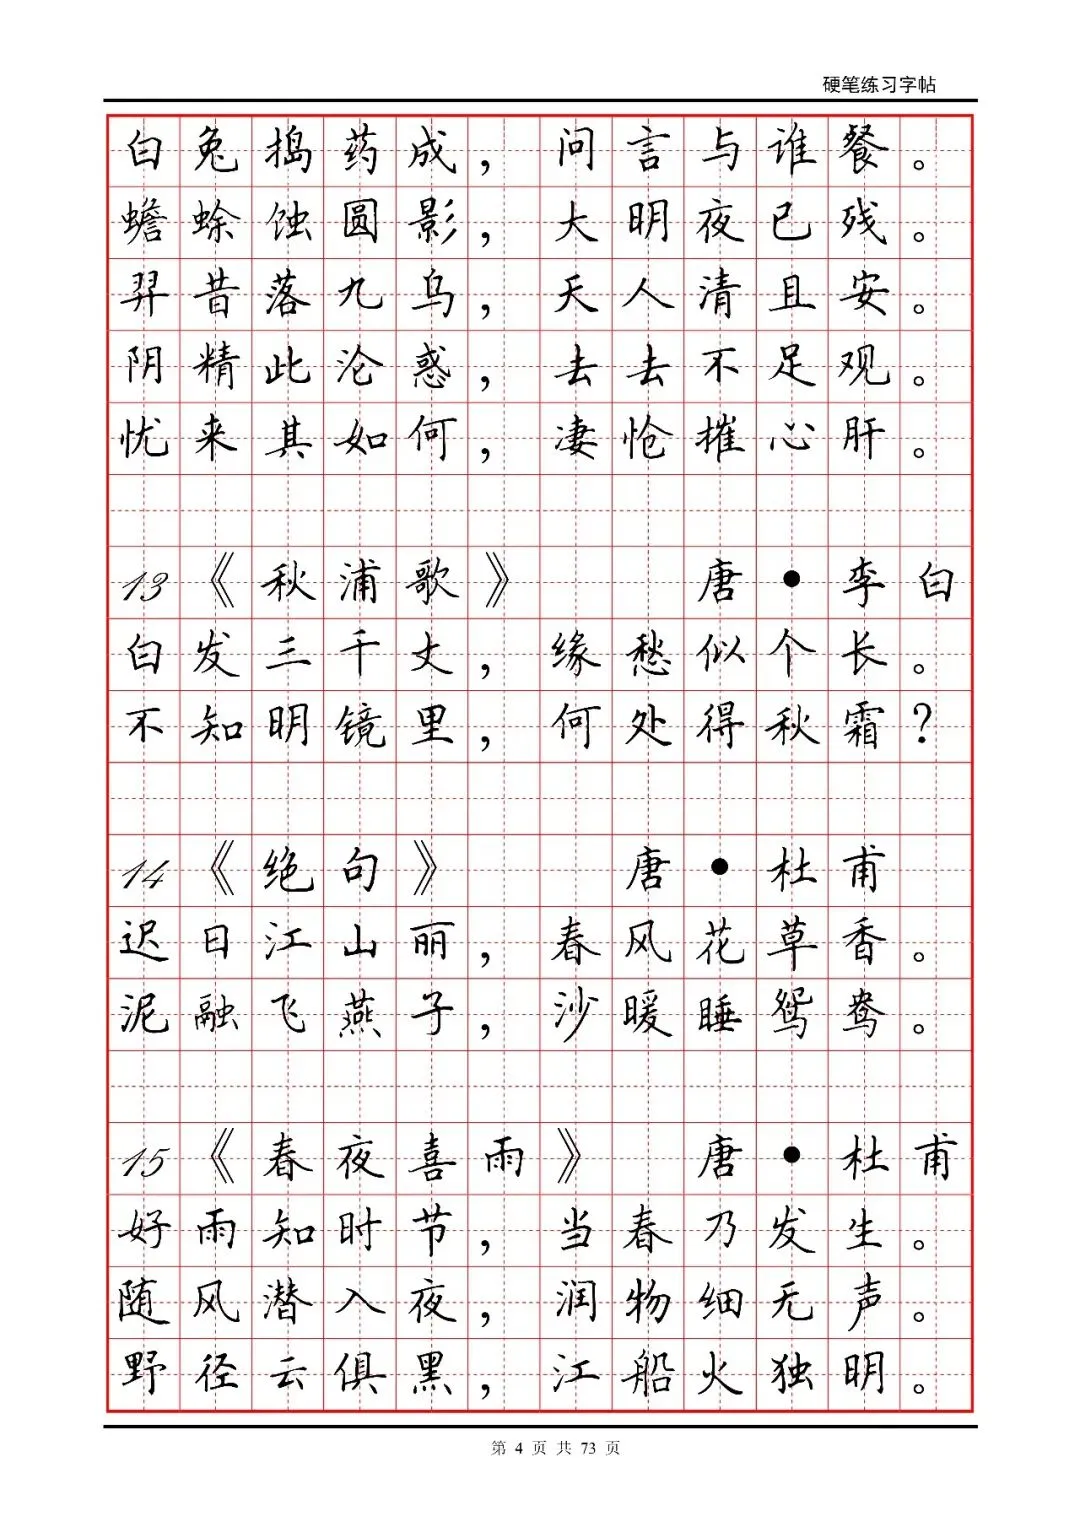 硬笔练习字帖
白兔捣药成，问言与谁餐。
蟾蜍蚀圆影，大明夜已残。
羿昔落九乌，天人清且安。
阴精此沦惑，去去不足观。
忧来其如何，凄怆摧心肝。
13《秋浦歌》 唐•李白
白发三千丈，缘愁似个长。
不知明镜里，何处得秋霜？
14《绝句》 唐•杜甫
迟日江山丽，春风花草香。
泥融飞燕子，沙暖睡鸳鸯。
15《春夜喜雨》 唐•杜甫
好雨知时节，当春乃发生。
随风潜入夜，润物细无声。
野径云俱黑，江船火独明。
第 4 页 共 73 页